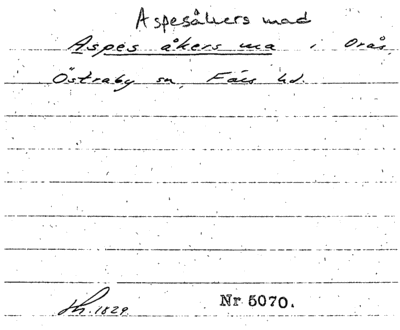 Aspesåkers mad
Aspes åkers ma i Orås,
Östraby sn, Färs hd.
Sk. 1829 Nr 5070.